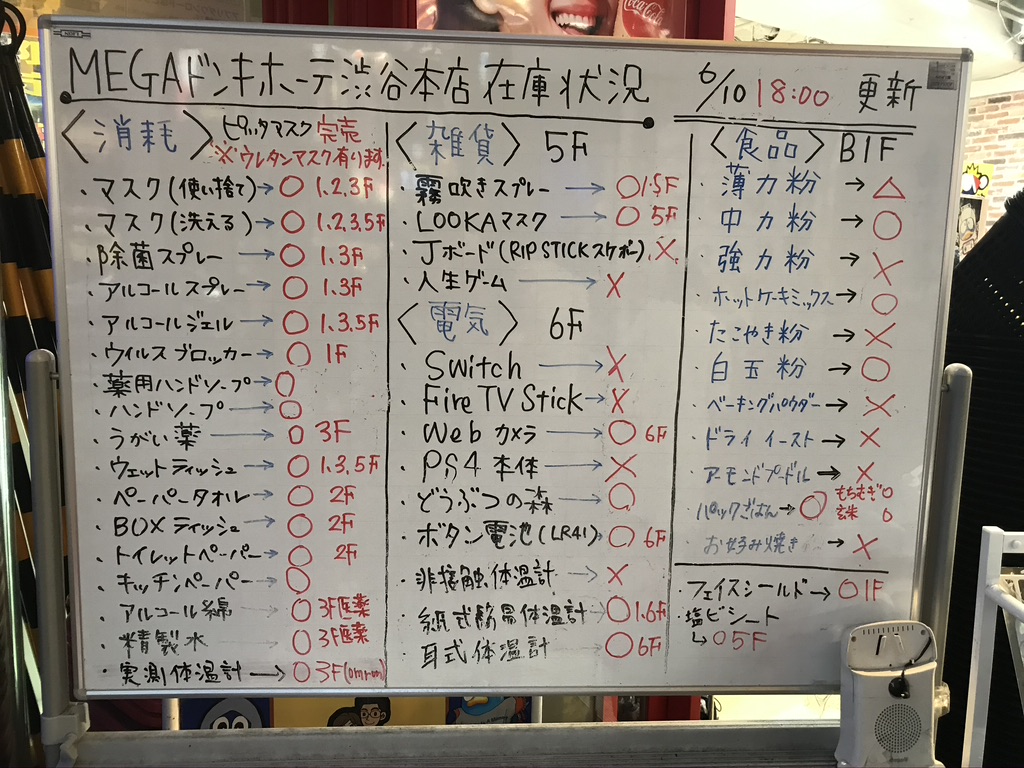 MEGAドンキホーテ渋谷本店 在庫状況 6/10 18:00 更新
〈消耗〉ピッタマスク 完売
※ウレタンマスク有ります。
・マスク(使い捨て)→○ 1.2.3F
・マスク(洗える)→○ 1.2.3.5F
・除菌スプレー→○ 1.3F
・アルコールスプレー→○ 1.3F
・アルコールジェル→○ 1.3.5F
・ウイルスブロッカー→○ 1F
・薬用ハンドソープ→○
・ハンドソープ→○
・うがい薬→○ 3F
・ウェットティッシュ→○ 1.3.5F
・ペーパータオル→○ 2F
・BOXティッシュ→○ 2F
・トイレットペーパー→○ 2F
・キッチンペーパー→○
・アルコール綿→○ 3F医薬
・精製水→○ 3F医薬
・実測体温計→○3F(omron)
〈雑貨〉5F
・霧吹きスプレー→○1.5F
・LOOKAマスク→○ 5F
・Jボード(RIPSTICKスケボー).×
・人生ゲーム→×
〈電気〉6F
・Switch→×
・Fire TV Stick→×
・Webカメラ→○ 6F
・PS4本体→×
・どうぶつの森→○
・ボタン電池(LR41)→○ 6F
・非接触体温計→×
・紙式簡易体温計→○1.6F
・耳式体温計→○6F
〈食品〉B1F
・薄力粉→△
・中力粉→○
・強力粉→×
・ホットケーキミックス→○
・たこやき粉→×
・白玉粉→○
・ベーキングパウダー→×
・ドライイースト→×
・アーモンドプードル→×
・パックごはん→○ もちむぎ○
玄米 ○
・お好み焼き→×
・フェイスシールド→○1F
・塩ビシート
↳○5F
Coca-Cola